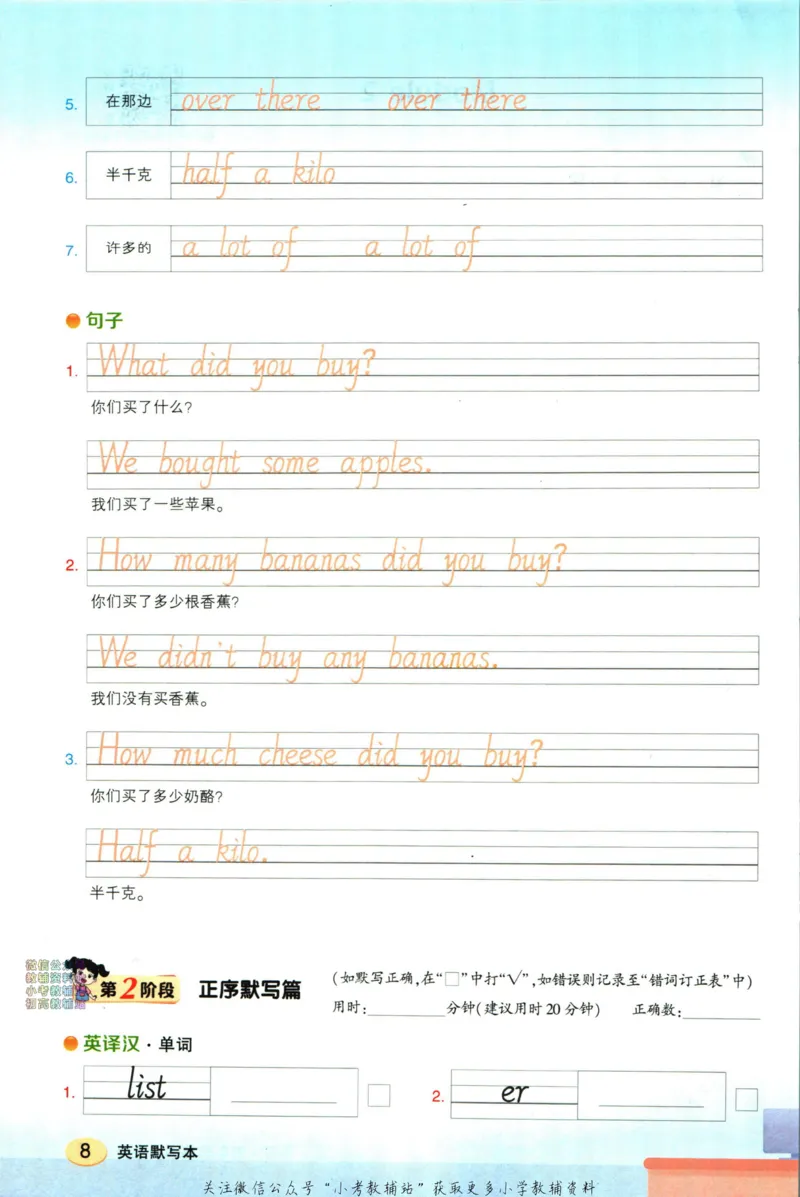 5. 在那边 over there over there
6. 半千克 half a kilo
7. 许多的 a lot of a lot of
句子
1. What did you buy?
你们买了什么?
We bought some apples.
我们买了一些苹果。
2. How many bananas did you buy?
你们买了多少根香蕉?
We didn't buy any bananas.
我们没有买香蕉。
3. How much cheese did you buy?
你们买了多少奶酪?
Half a kilo.
半千克。
第2阶段 正序默写篇
(如默写正确,在“□”中打“√”,如错误则记录至“错词订正表”中)
用时:________分钟(建议用时20分钟) 正确数:________
英译汉·单词
1. list 2. er
8 英语默写本
关注微信公众号“小考教辅站”获取更多小学教辅资料